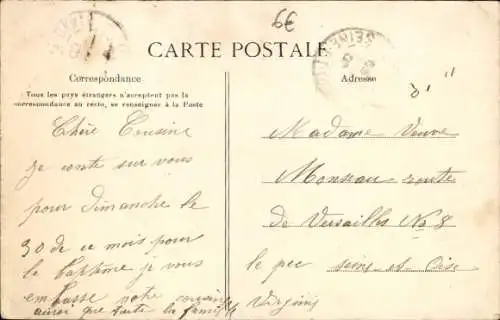 6€
CARTE POSTALE
Correspondance
Adresse
Tous les pays étrangers n'acceptent pas la
correspondance au recto, se renseigner à la Poste
Chère Cousine
je conte sur vous
pour dimanche le
30 de ce mois pour
le baptême je vous
embrasse votre cousine
ainsi que toute la famille
Madame Veuve
route
de Versailles No 8
le pec seine et Oise